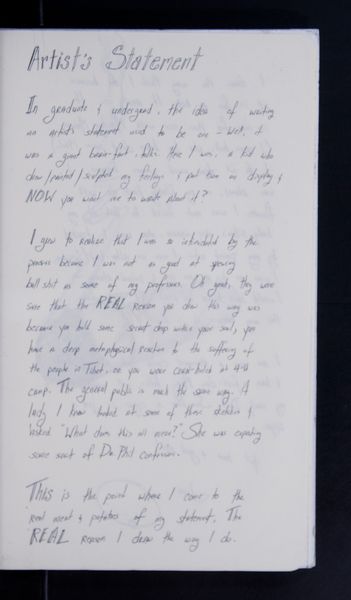 Artist's Statement
In graduate & undergrad, the idea of writing
an artist's statement used to be one - well, it
was a giant brain-fart, folks. Here I was, a kid who
drew/painted/sculpted my feelings & put them on display &
NOW you want me to write about it?
I grew to realize that I was so intimidated by the
process because I was not as good at spewing
bullshit as some of my professors. Oh yeah, they were
sure that the REAL reason you draw this way was
because you hold some secret deep within your soul, you
have a deep metaphysical reaction to the suffering of
the people in Tibet, or you were cross-bited at 4-H
camp. The general public is much the same way. A
lady I know looked at some of these sketches &
asked "What does this all mean?" She was expecting
some sort of Dr. Phil confession.
This is the point where I come to the
real meat & potatoes of my statement. The
REAL reason I draw the way I do.